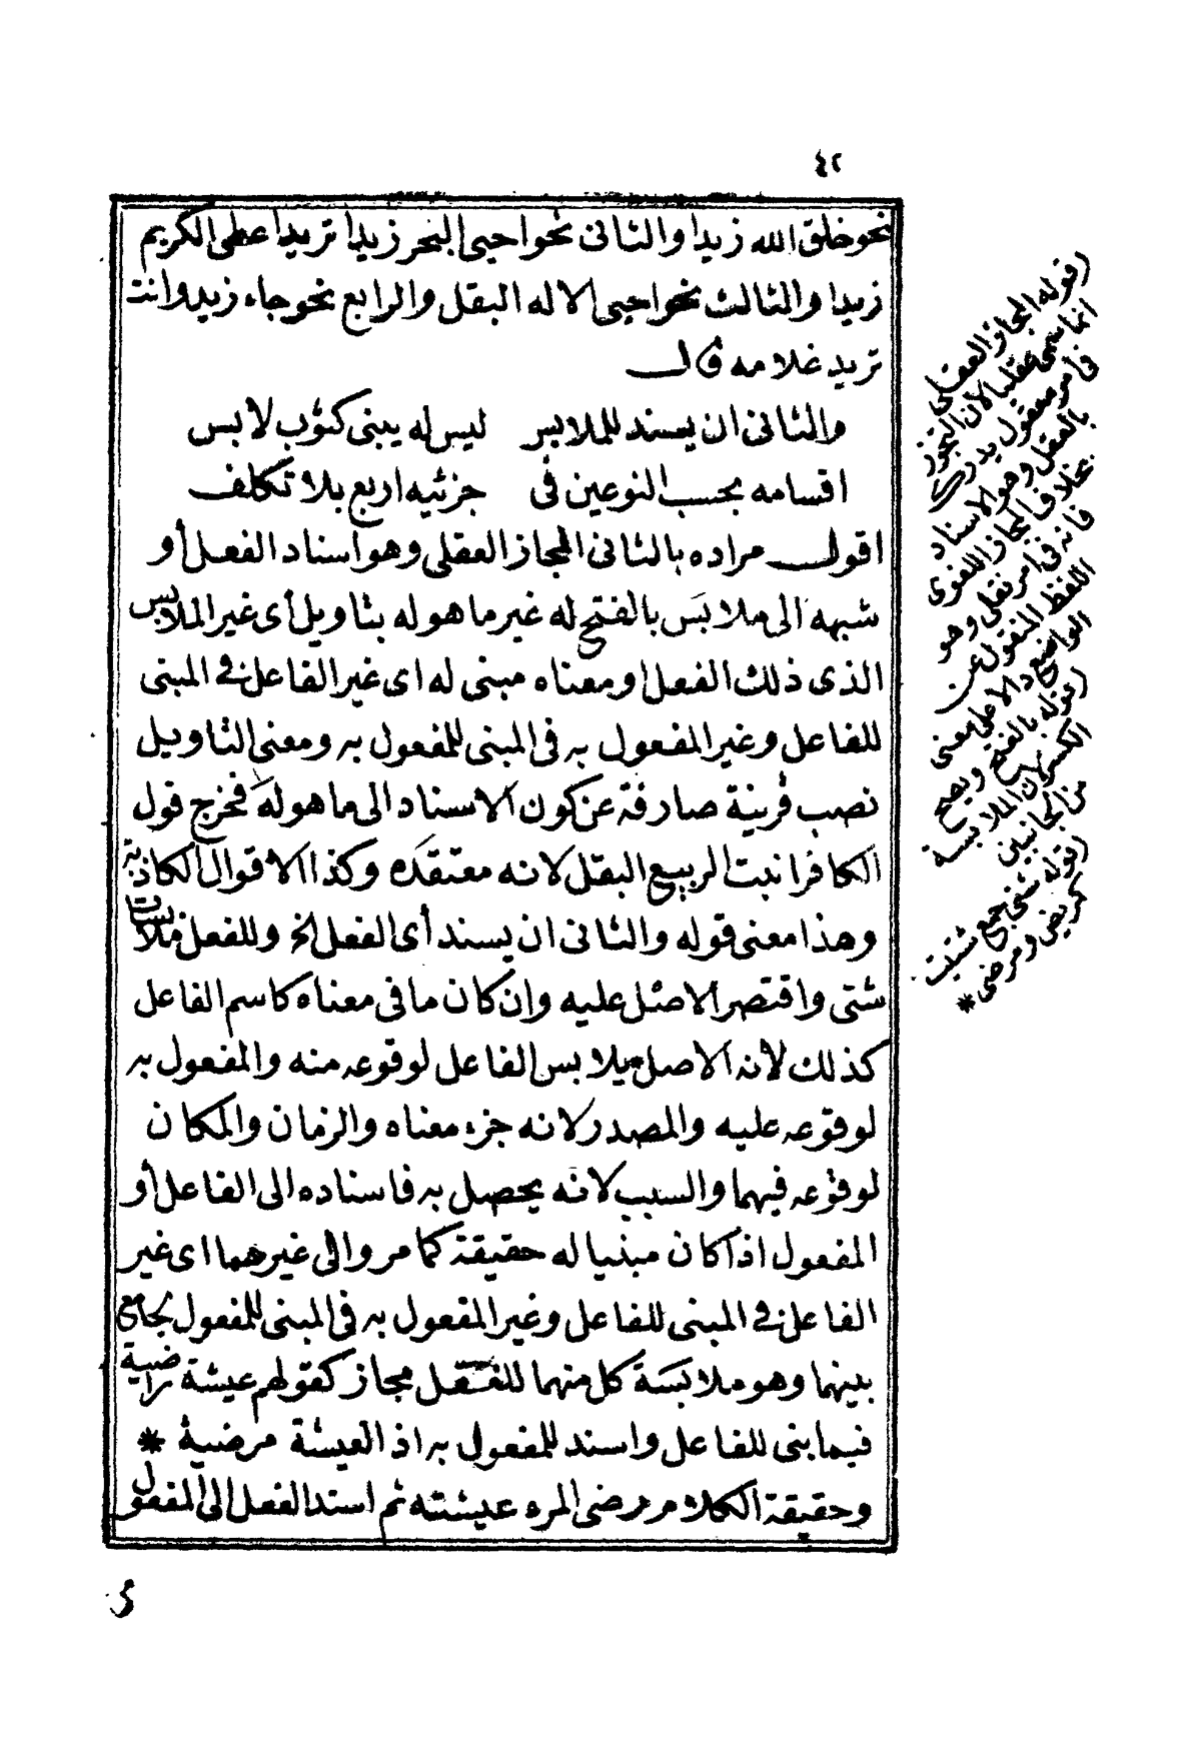 ٤٢
نحو خلق الله زيدا والثانى نحو احيى البحر زيدا تريد اعطى الكريم
زيدا والثالث نحو احيى الاله البقل والرابع نحو جاء زيد وانت
تريد غلامه قال
والثانى ان يسند للملابس ليس له يبنى كثوب لابس
اقسامه بحسب النوعين فى جزئيه اربع بلا تكلف
اقول مراده بالثانى المجاز العقلى وهو اسناد الفعل أو
شبهه الى ملابَس بالفتح له غير ما هو له بتاويل أى غير الملابس
الذى ذلك الفعل او معناه مبنى له اى غير الفاعل فى المبنى
للفاعل وغير المفعول به فى المبنى للمفعول به ومعنى التاويل
نصب قرينة صارفة عن كون الاسناد الى ما هو له فخرج قول
الكافر انبت الربيع البقل لانه معتقده وكذا الاقوال الكاذبة
وهذا معنى قوله والثانى ان يسند أى الفعل الخ وللفعل ملابسات
شتى واقتصر الاصل عليه وان كان ما فى معناه كاسم الفاعل
كذلك لانه الاصل يلابس الفاعل لوقوعه منه والمفعول به
لوقوعه عليه والمصدر لانه جزء معناه والزمان والمكان
لوقوعه فيهما والسبب لانه يحصل به فاسناده الى الفاعل أو
المفعول اذا كان مبنيا له حقيقة كما مر والى غيرهما اى غير
الفاعل فى المبنى للفاعل وغير المفعول به فى المبنى للمفعول بجامع
بينهما وهو ملابسة كل منهما للفعل مجاز كقولهم عيشة راضية
فيما بنى للفاعل واسند للمفعول به اذ العيشة مرضية *
وحقيقة الكلام رضى المرء عيشته ثم اسند الفعل الى المفعول
(قوله المجاز العقلى
انما سمى عقليا لان التجوز
فى امر معقول يدرك
بالعقل وهو الاسناد
بخلاف المجاز اللغوى
فانه فى امر نقلى وهو
اللفظ المنقول عن
الواضع الا على معنى
(قوله بالفتح ويصح
الكسر لان الملابسة
من الجانبين
(قوله شتى جمع شتيت
كمريض ومرضى *